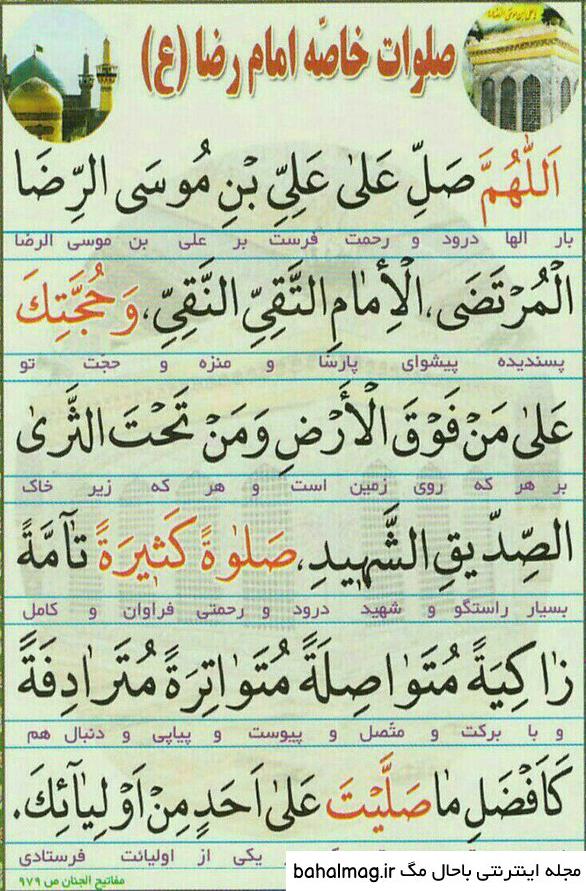 صلوات خاصّه امام رضا (ع)
اَللّٰهُمَّ صَلِّ عَلىٰ عَلِىِّ بْنِ مُوسَى الرِّضَا
بار الها درود و رحمت فرست بر علی بن موسی الرضا
الْمُرْتَضَى، الْأِمٰامِ التَّقِىِّ النَّقِىِّ، وَ حُجَّتِكَ
پسندیده پیشوای پارسا و منزه و حجّت تو
عَلىٰ مَنْ فَوْقَ الْأَرْضِ وَ مَنْ تَحْتَ الثَّرىٰ
بر هر که روی زمین است و هر که زیر خاک
الصِّدّيقِ الشَّهيدِ، صَلوٰةً كَثيرَةً تٰآمَّةً
بسیار راستگو و شهید درود و رحمتی فراوان و کامل
زٰاكِيَةً مُتَوٰاصِلَةً مُتَوٰاتِرَةً مُتَرٰادِفَةً
و با برکت و متّصل و پیوست و پیاپی و دنبال هم
كَاَفْضَلِ مٰا صَلَّيْتَ عَلىٰ اَحَدٍ مِنْ اَوْلِيٰآئِكَ.
یکی از اولیائت فرستادی
مجله اینترنتی باحال مگ bahalmag.ir
مفاتیح الجنان ص ۹۷۹